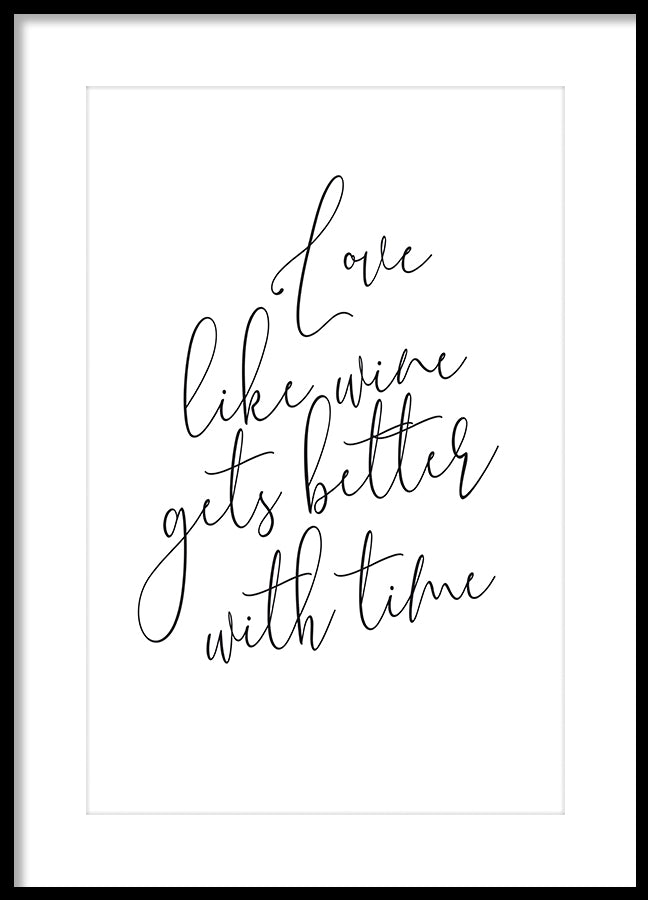 Love
like wine
gets better
with time